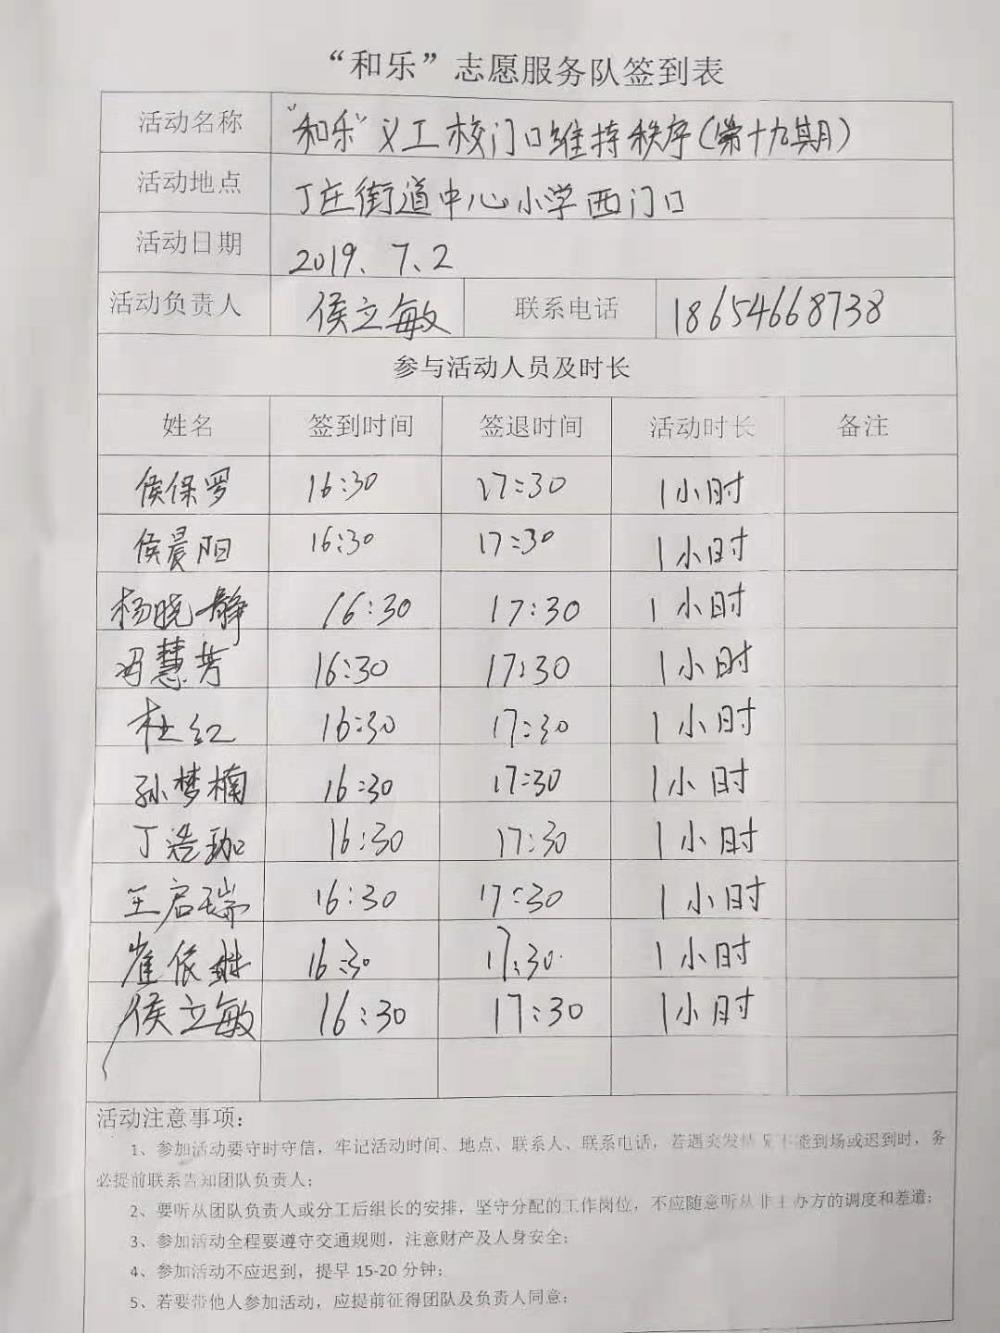 “和乐”志愿服务队签到表
活动名称 “和乐”义工校门口维持秩序(第十九期)
活动地点 丁庄街道中心小学西门口
活动日期 2019.7.2
活动负责人 侯立敏 联系电话 18654668738
参与活动人员及时长
姓名 签到时间 签退时间 活动时长 备注
侯保罗 16:30 17:30 1小时
侯晨阳 16:30 17:30 1小时
杨晓静 16:30 17:30 1小时
冯慧芳 16:30 17:30 1小时
杜红 16:30 17:30 1小时
孙梦楠 16:30 17:30 1小时
丁浩珈 16:30 17:30 1小时
王启瑞 16:30 17:30 1小时
崔依琳 16:30 17:30 1小时
侯立敏 16:30 17:30 1小时
活动注意事项：
1、参加活动要守时守信，牢记活动时间、地点、联系人、联系电话，若遇突发情况不能到场或迟到时，务
必提前联系告知团队负责人；
2、要听从团队负责人或分工后组长的安排，坚守分配的工作岗位，不应随意听从非主办方的调度和差遣；
3、参加活动全程要遵守交通规则，注意财产及人身安全；
4、参加活动不应迟到，提早 15-20 分钟；
5、若要带他人参加活动，应提前征得团队及负责人同意；